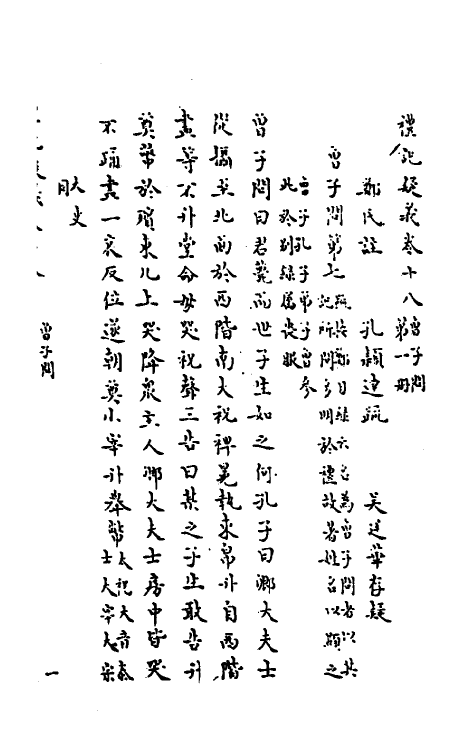 禮記疑義卷十八曾子問第一冊
鄭氏註　孔穎達疏　吳廷華存疑
曾子問第七疏按鄭目錄云名為曾子問者以其記所問多明於禮故著姓名以顯之
曾子孔子弟子曾參此於別錄屬喪服
曾子問曰君薨而世子生如之何孔子曰卿大夫士
從攝主北面於西階南大祝裨冕執束帛升自西階
盡等不升堂命毋哭祝聲三告曰某之子生敢告升
奠幣於殯東几上哭降眾主人卿大夫士房中皆哭
不踊盡一哀反位遂朝奠小宰升舉幣大祝大音泰士大宰大宗
大史同
曾子問
一